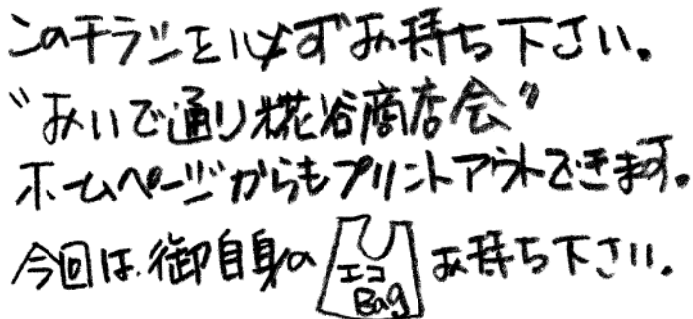 このチラシを必ずお持ち下さい。
"おいで通り糀谷商店会"
ホームページからもプリントアウトできます。
今回は、御自身のエコBagお持ち下さい。